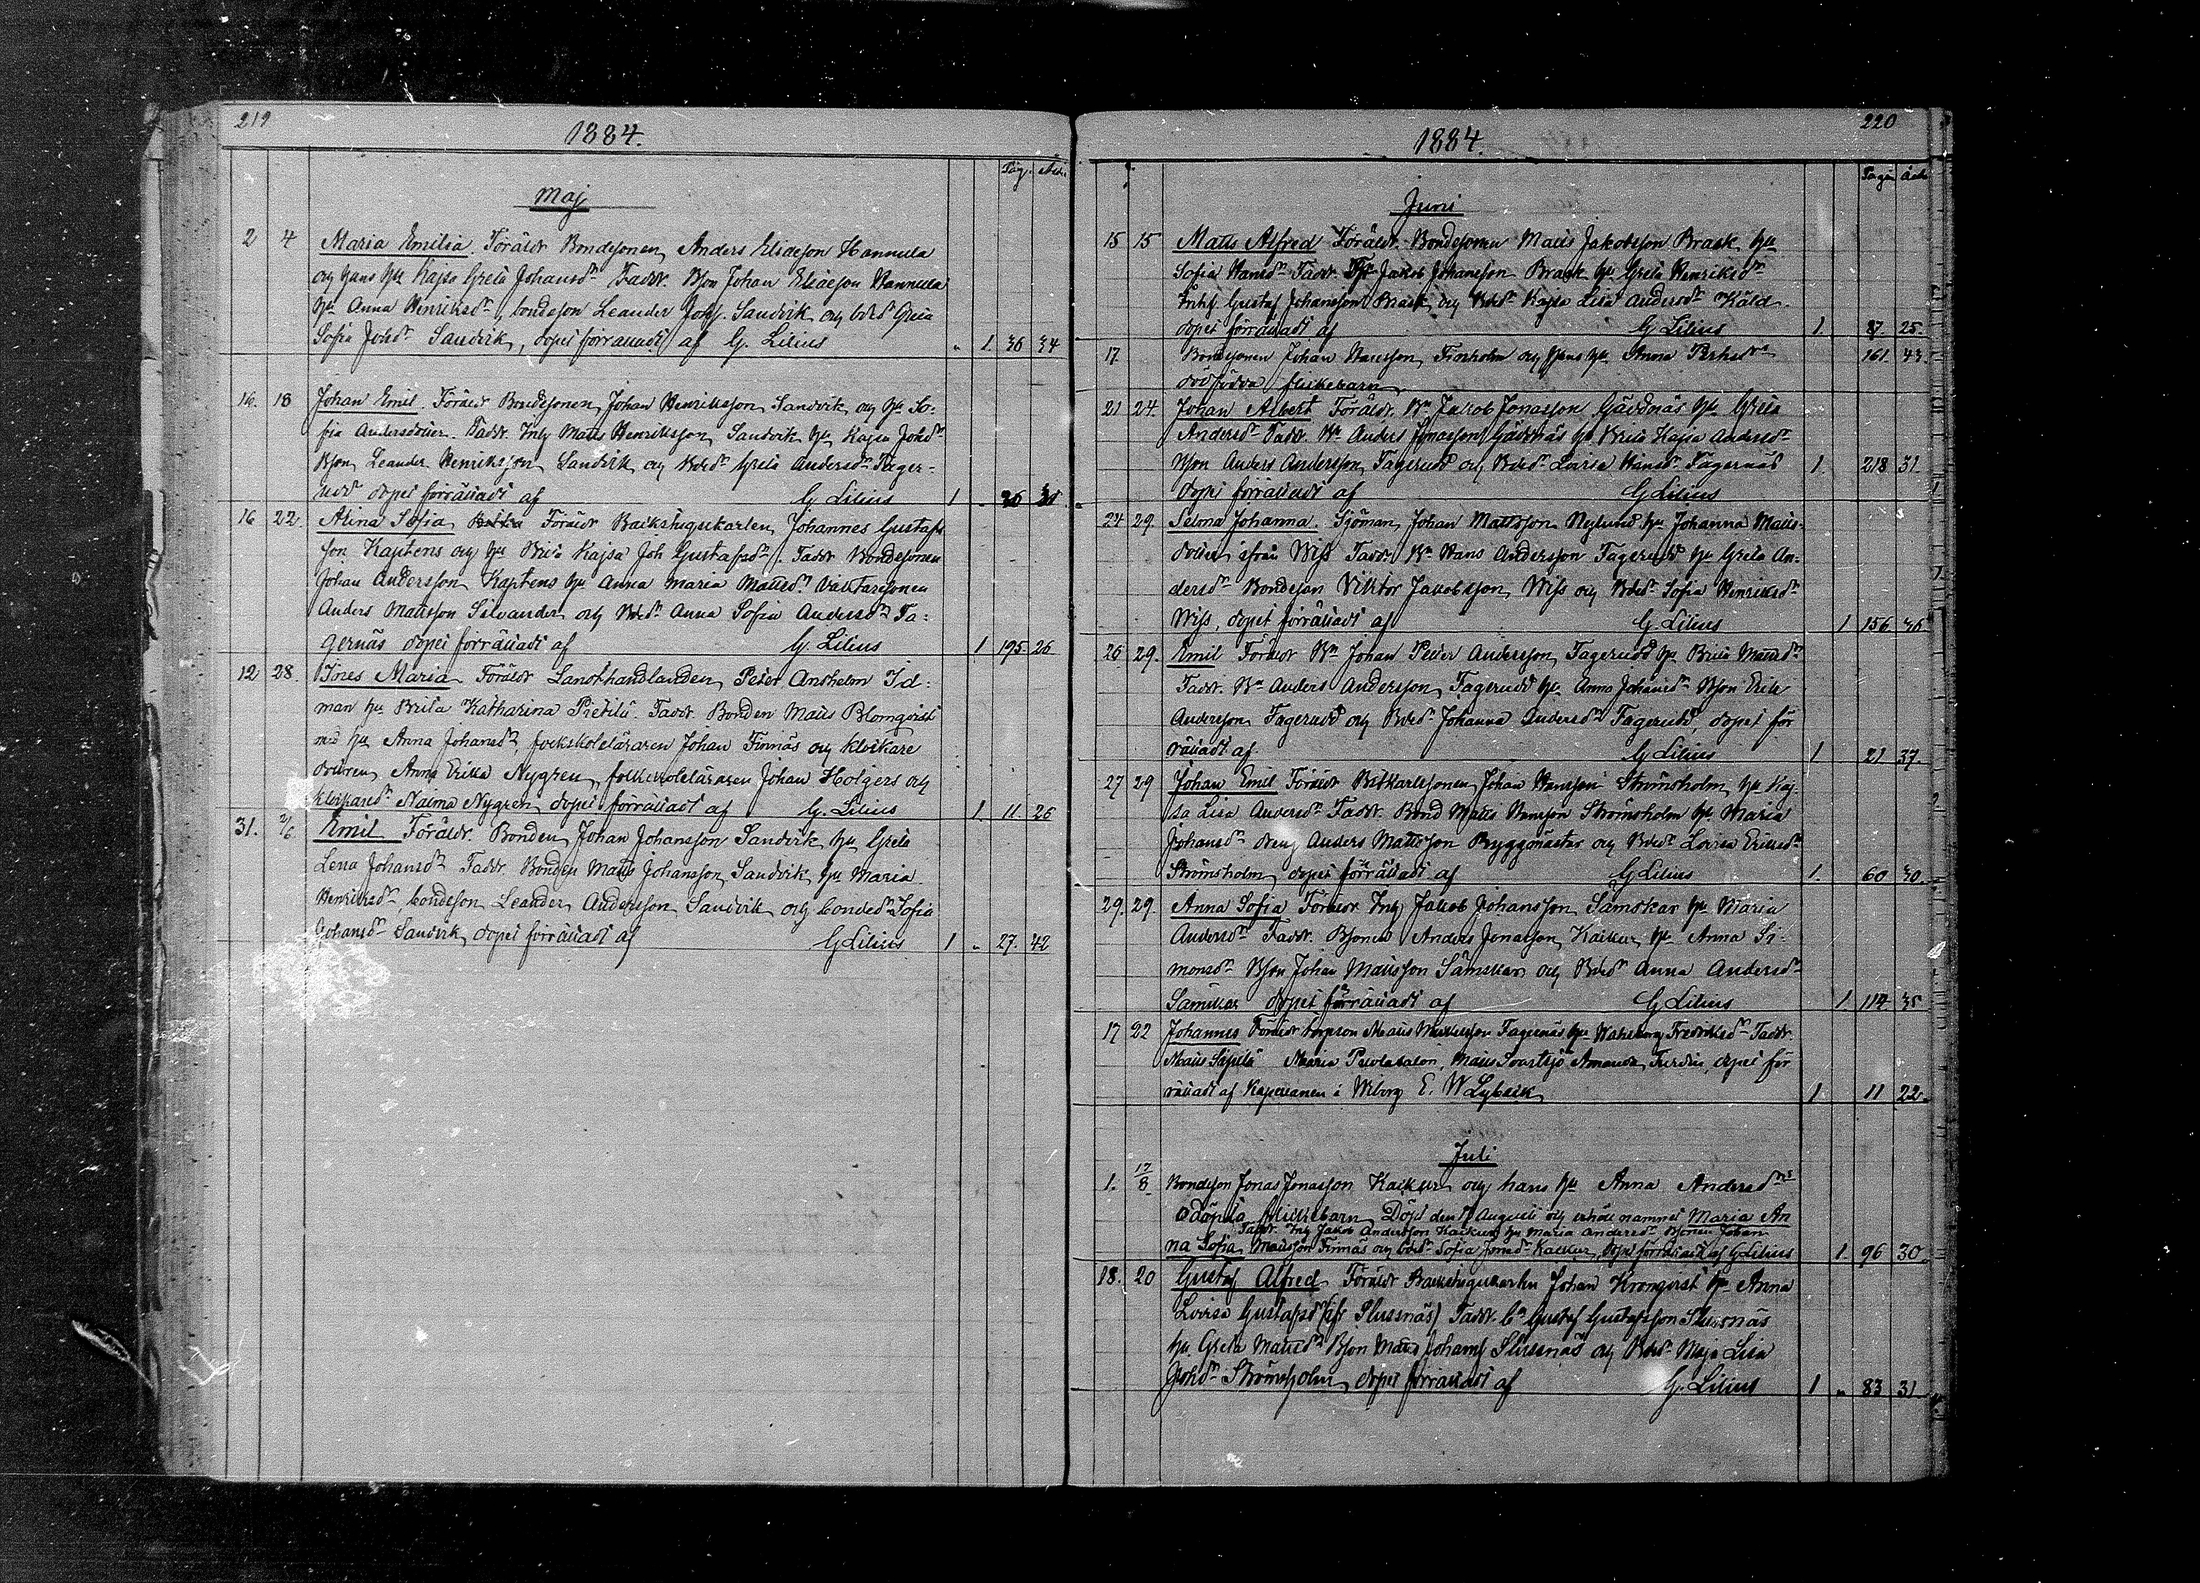 219
1884.
Pag. Ald.
Maj
2 4 Maria Emilia. Föräldr Bondesonen, Anders Eliæson Hannula
och hans hu Kajsa Greta Johansdr Faddr. Bson Johan Eliæson Hannula
hu Anna Henriksdr, bondeson Leander Johs. Sandvik och bdr Greta
Sofia Johdr Sandvik, dopet förrättadt af G. Lilius „ 1. 36 34
16. 18 Johan Emil. Föräldr Bondesonen, Johan Henriksson Sandvik och hu So-
fia Andersdotter. Faddr. Inhy Matts Henriksson, Sandvik hu Kajsa Johdr
Bson Leander Henriksson, Sandvik och Bdr Greta Andersdr Tager-
udd dopet förrättadt af G Lilius 1
16 22. Alina Sofia Föräldr Backstugukarlen, Johannes Gustafs
son Kaptens och hu Brita Kajsa Joh Gustafsdr. Faddr Bondesonen
Johan Andersson Kaptens hu Anna Maria Mattsdr
Anders Mattsson Silvander och Bdr Anna Sofia Andersdr Ta-
gernäs dopet förrättadt af G. Lilius 1. 195. 26
12 28. Ines Maria Föräldr Landthandlanden, Peter Anshelm Id-
man hu Brita Katharina Pietilä. Faddr. Bonden Matts Blomqvist
med hu Anna Johansdr, folkskoleläraren Johan Finnäs och klockare
dottren, Anna Erika Nygren, folkskoleläraren Johan Holgers och
klockaredr Naima Nygren, dopet förrättadt af G. Lilius 1. 11. 26
31. 2/6 Emil Föräldr. Bonden, Johan Johansson Sandvik hu Greta
Lena Johansdr Faddr. Bonden Matts Johansson, Sandvik, hu Maria
Henriksdr, bondeson Leander Andersson Sandvik och bondedr Sofia
Johansdr Sandvik, dopet förrättadt af G Lilius 1 „ 27. 42
220
1884.
Juni
15 15 Matts Alfred Föräldr. Bondesonen Matts Jakobsson Brask hu
Sofia Hansdr Faddr. Jakob Johansson Brask hu Greta Henriksdr
Inhy Gustaf Johansson Brask och Bdr Kajsa Lisa Andersdr Käld
dopet förrättadt af G Lilius 1. 87. 25.
17. Bondesonen Johan Hansson, Finholm och hans hu Anna 161. 43.
dödfödda flickebarn
21 24. Johan Albert Föräldr. Bn Jakob Jonasson Gäddnäs hu Greta
Andersdr Faddr. Bn Anders Jonasson Gäddnäs hu Brita Kajsa Andersdr
Bson Anders Andersson, Tagerudd och Bdr Lovisa Hansdr Tagernäs 1. 218 31.
dopet förrättadt af G Lilius
24 29. Selma Johanna. Sjöman, Johan Mattsson Nylund hu Johanna Matts-
dotter, ifrån Wiss Faddr. Bn Hans Andersson Tagerudd hu Greta An-
dersdr Bondeson Viktor Jakobsson, Wiss och Bdr Sofia Henriksdr
Wiss, dopet förrättadt af G. Lilius 1 156 36.
26 29. Emil Föräldr Bn Johan Peter Andersson Tagerudd hu Brita Mattsdr
Faddr. Bn Anders Andersson, Tagerudd hu Anna Johansdr Bson Erik
Andersson Tagerudd och Bdr Johanna Andersdr Tagerudd, dopet för
rättadt af G Lilius 1 21 37.
27 29 Johan Emil Föräldr Johan Hansson Strömsholm hu Kaj-
sa Lisa Andersdr Faddr. Bond Matts Hansson Strömsholm hu Maria
Johansdr dreng Anders Mattsson Byggmästar och Bdr Lovisa Eriksdr
Strömsholm, dopet förrättadt af G Lilius 1. 60 30.
29. 29. Anna Sofia Föräldr Inhy Jakob Johansson Sämskar hu Maria
Andersdr Faddr. Bsonen Anders Jonasson, Kaikur hu Anna Si-
monsdr Bson Johan Mattsson Sämskar och Bdr Anna Andersdr
Sämskar dopet förrättadt af G Lilius 1. 114 35
17 22 Johannes Föräldr Matts Tagernäs hu Walborg Fredriksdr Faddr.
Matts Sipilä Maria Matts Amanda dopet för
rättadt af Kapellanen i Wiborg E. W Lybeck 1 11 22.
Juli
1. 17/8 Bondeson Jonas Jonasson Kaikur och hans hu Anna Andersdrs
odöpta flickebarn. Döpt den 17 Augusti och erhöll namnet Maria An
Faddr Inhy Jakob Andersson Kaikur hu Maria Andersdr Bsonen Johan
na Sofia Mattsson Finnäs och bdr Sofia Jonsdr Kaikur, dopet förrättadt af G Lilius 1. 96 30.
18. 20 Gustaf Alfred Föräldr Backstugukarlen Johan Kronqvist hu Anna
Lovisa Gustafsdr (ifr Slussnäs) Faddr. Bn Gustaf Gustafsson Slussnäs
hu Greta Mattsdr Bson Matts Johans Slussnäs och Bdr Maja Lisa
Johdr Strömsholm, dopet förrättadt af G. Lilius 1 „ 83 31.